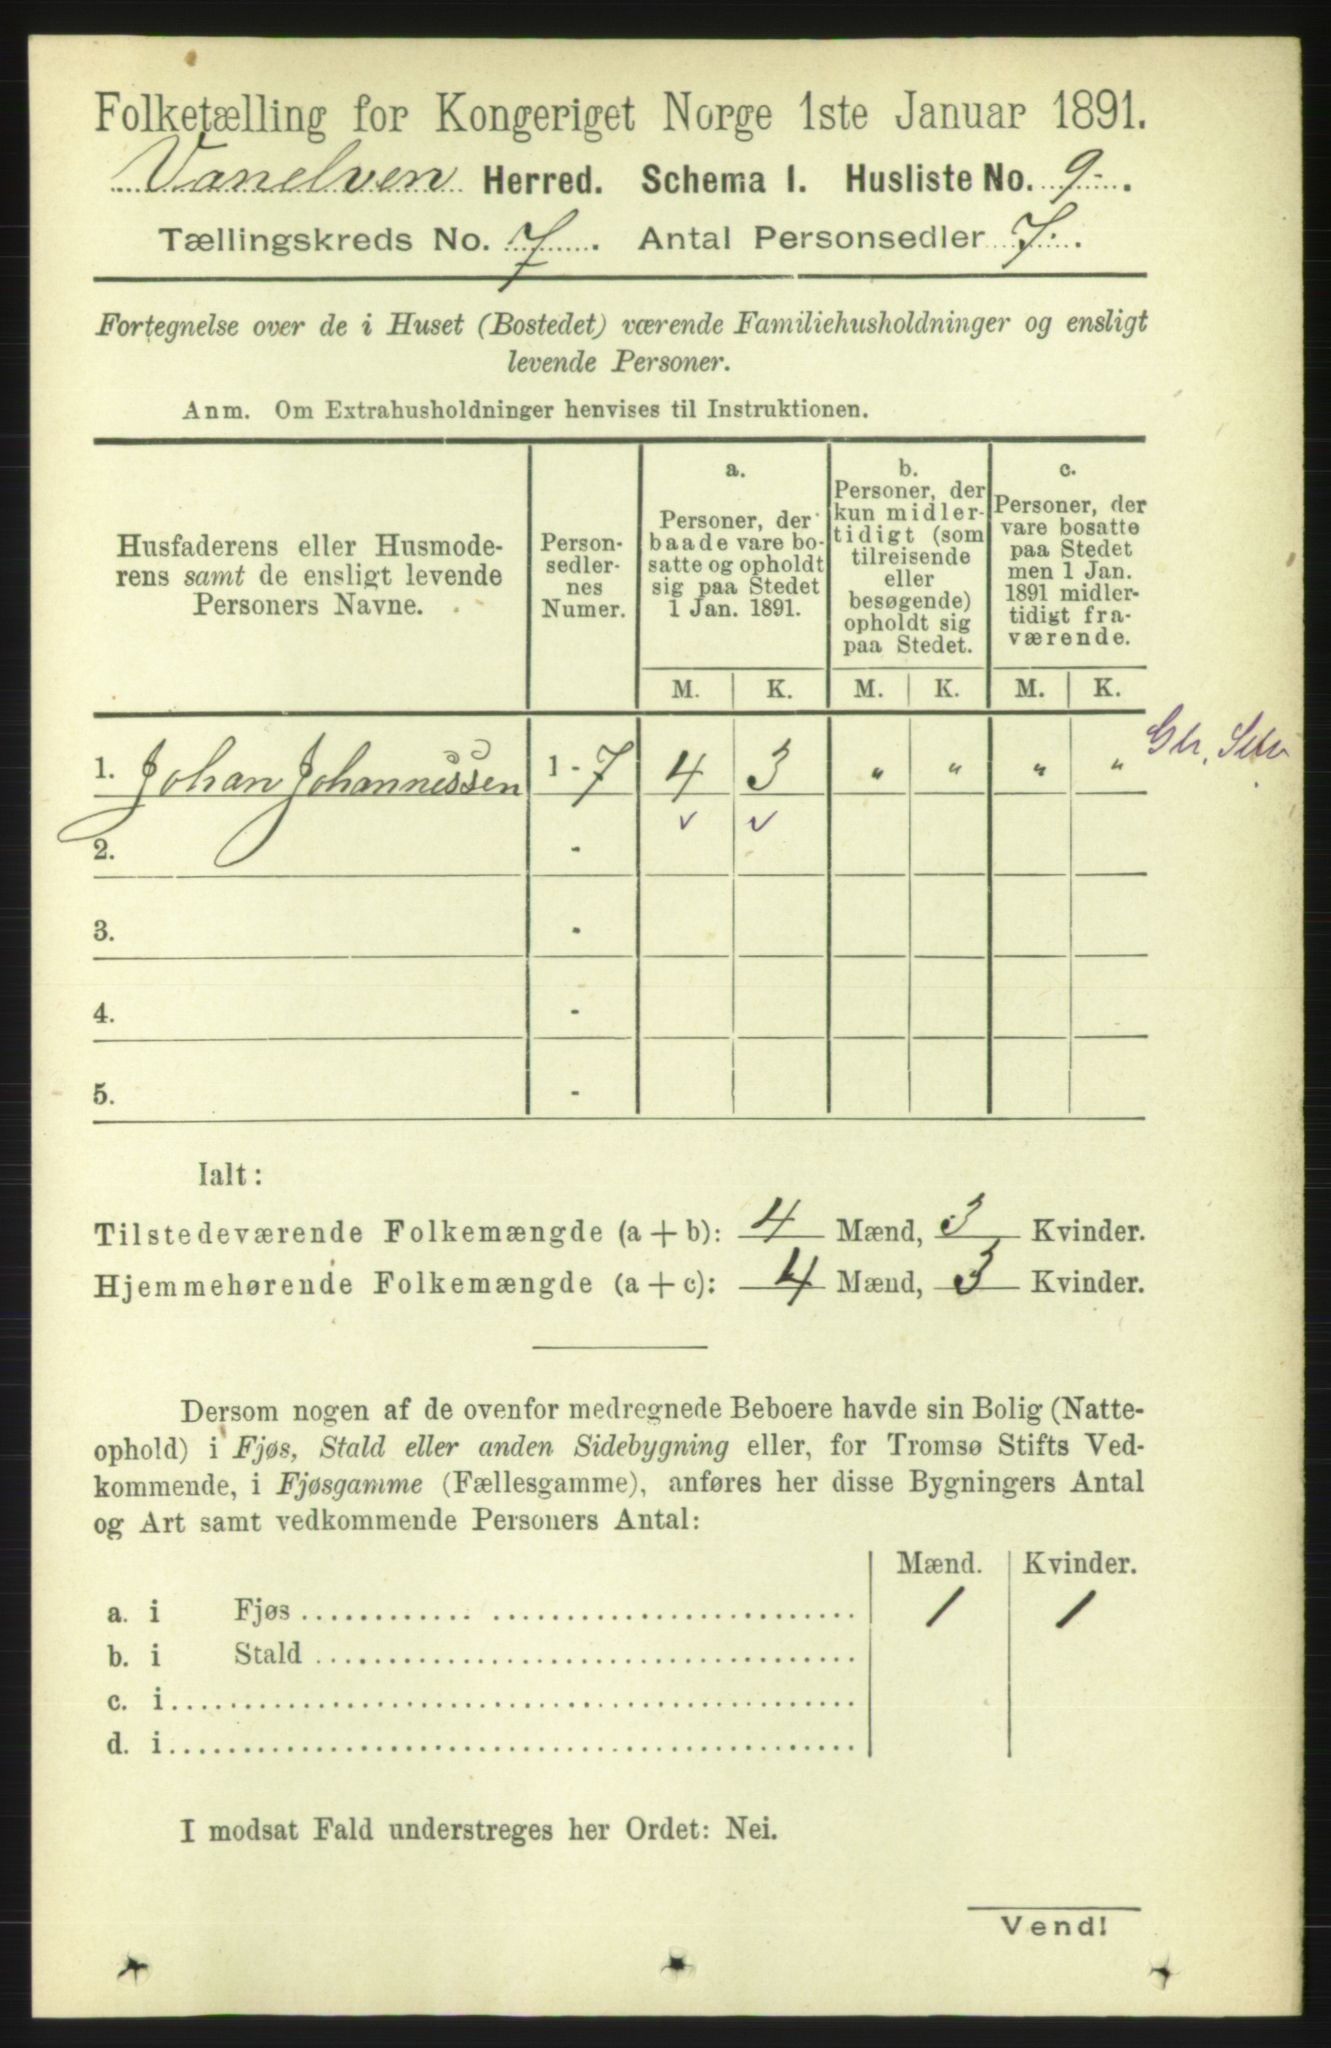 Folketælling for Kongeriget Norge 1ste Januar 1891.
Vanelven Herred. Schema 1. Husliste No. 9.
Tællingskreds No. 7. Antal Personsedler 7.
Fortegnelse over de i Huset (Bostedet) værende Familiehusholdninger og ensligt
levende Personer.
Anm. Om Extrahusholdninger henvises til Instruktionen.
Husfaderens eller Husmode-
rens samt de ensligt levende
Personers Navne.
Person-
sedler-
nes
Numer.
a.
Personer, der
baade vare bo-
satte og opholdt
sig paa Stedet
1 Jan. 1891.
b.
Personer, der
kun midler-
tidigt (som
tilreisende
eller
besøgende)
opholdt sig
paa Stedet.
c.
Personer, der
vare bosatte
paa Stedet
men 1 Jan.
1891 midler-
tidigt fra-
værende.
M. K. M. K. M. K.
1. Johan Johannessen 1 - 7 4 3 " " " "
2. -
3. -
4. -
5. -
Ialt:
Tilstedeværende Folkemængde (a + b): 4 Mænd, 3 Kvinder.
Hjemmehørende Folkemængde (a + c): 4 Mænd, 3 Kvinder.
Dersom nogen af de ovenfor medregnede Beboere havde sin Bolig (Natte-
ophold) i Fjøs, Stald eller anden Sidebygning eller, for Tromsø Stifts Ved-
kommende, i Fjøsgamme (Fællesgamme), anføres her disse Bygningers Antal
og Art samt vedkommende Personers Antal:
Mænd. Kvinder.
a. i Fjøs 1 1
b. i Stald
c. i
d. i
I modsat Fald understreges her Ordet: Nei.
Vend!